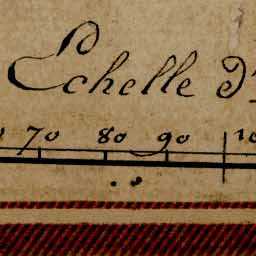 Echelle d'
70 80 90 10